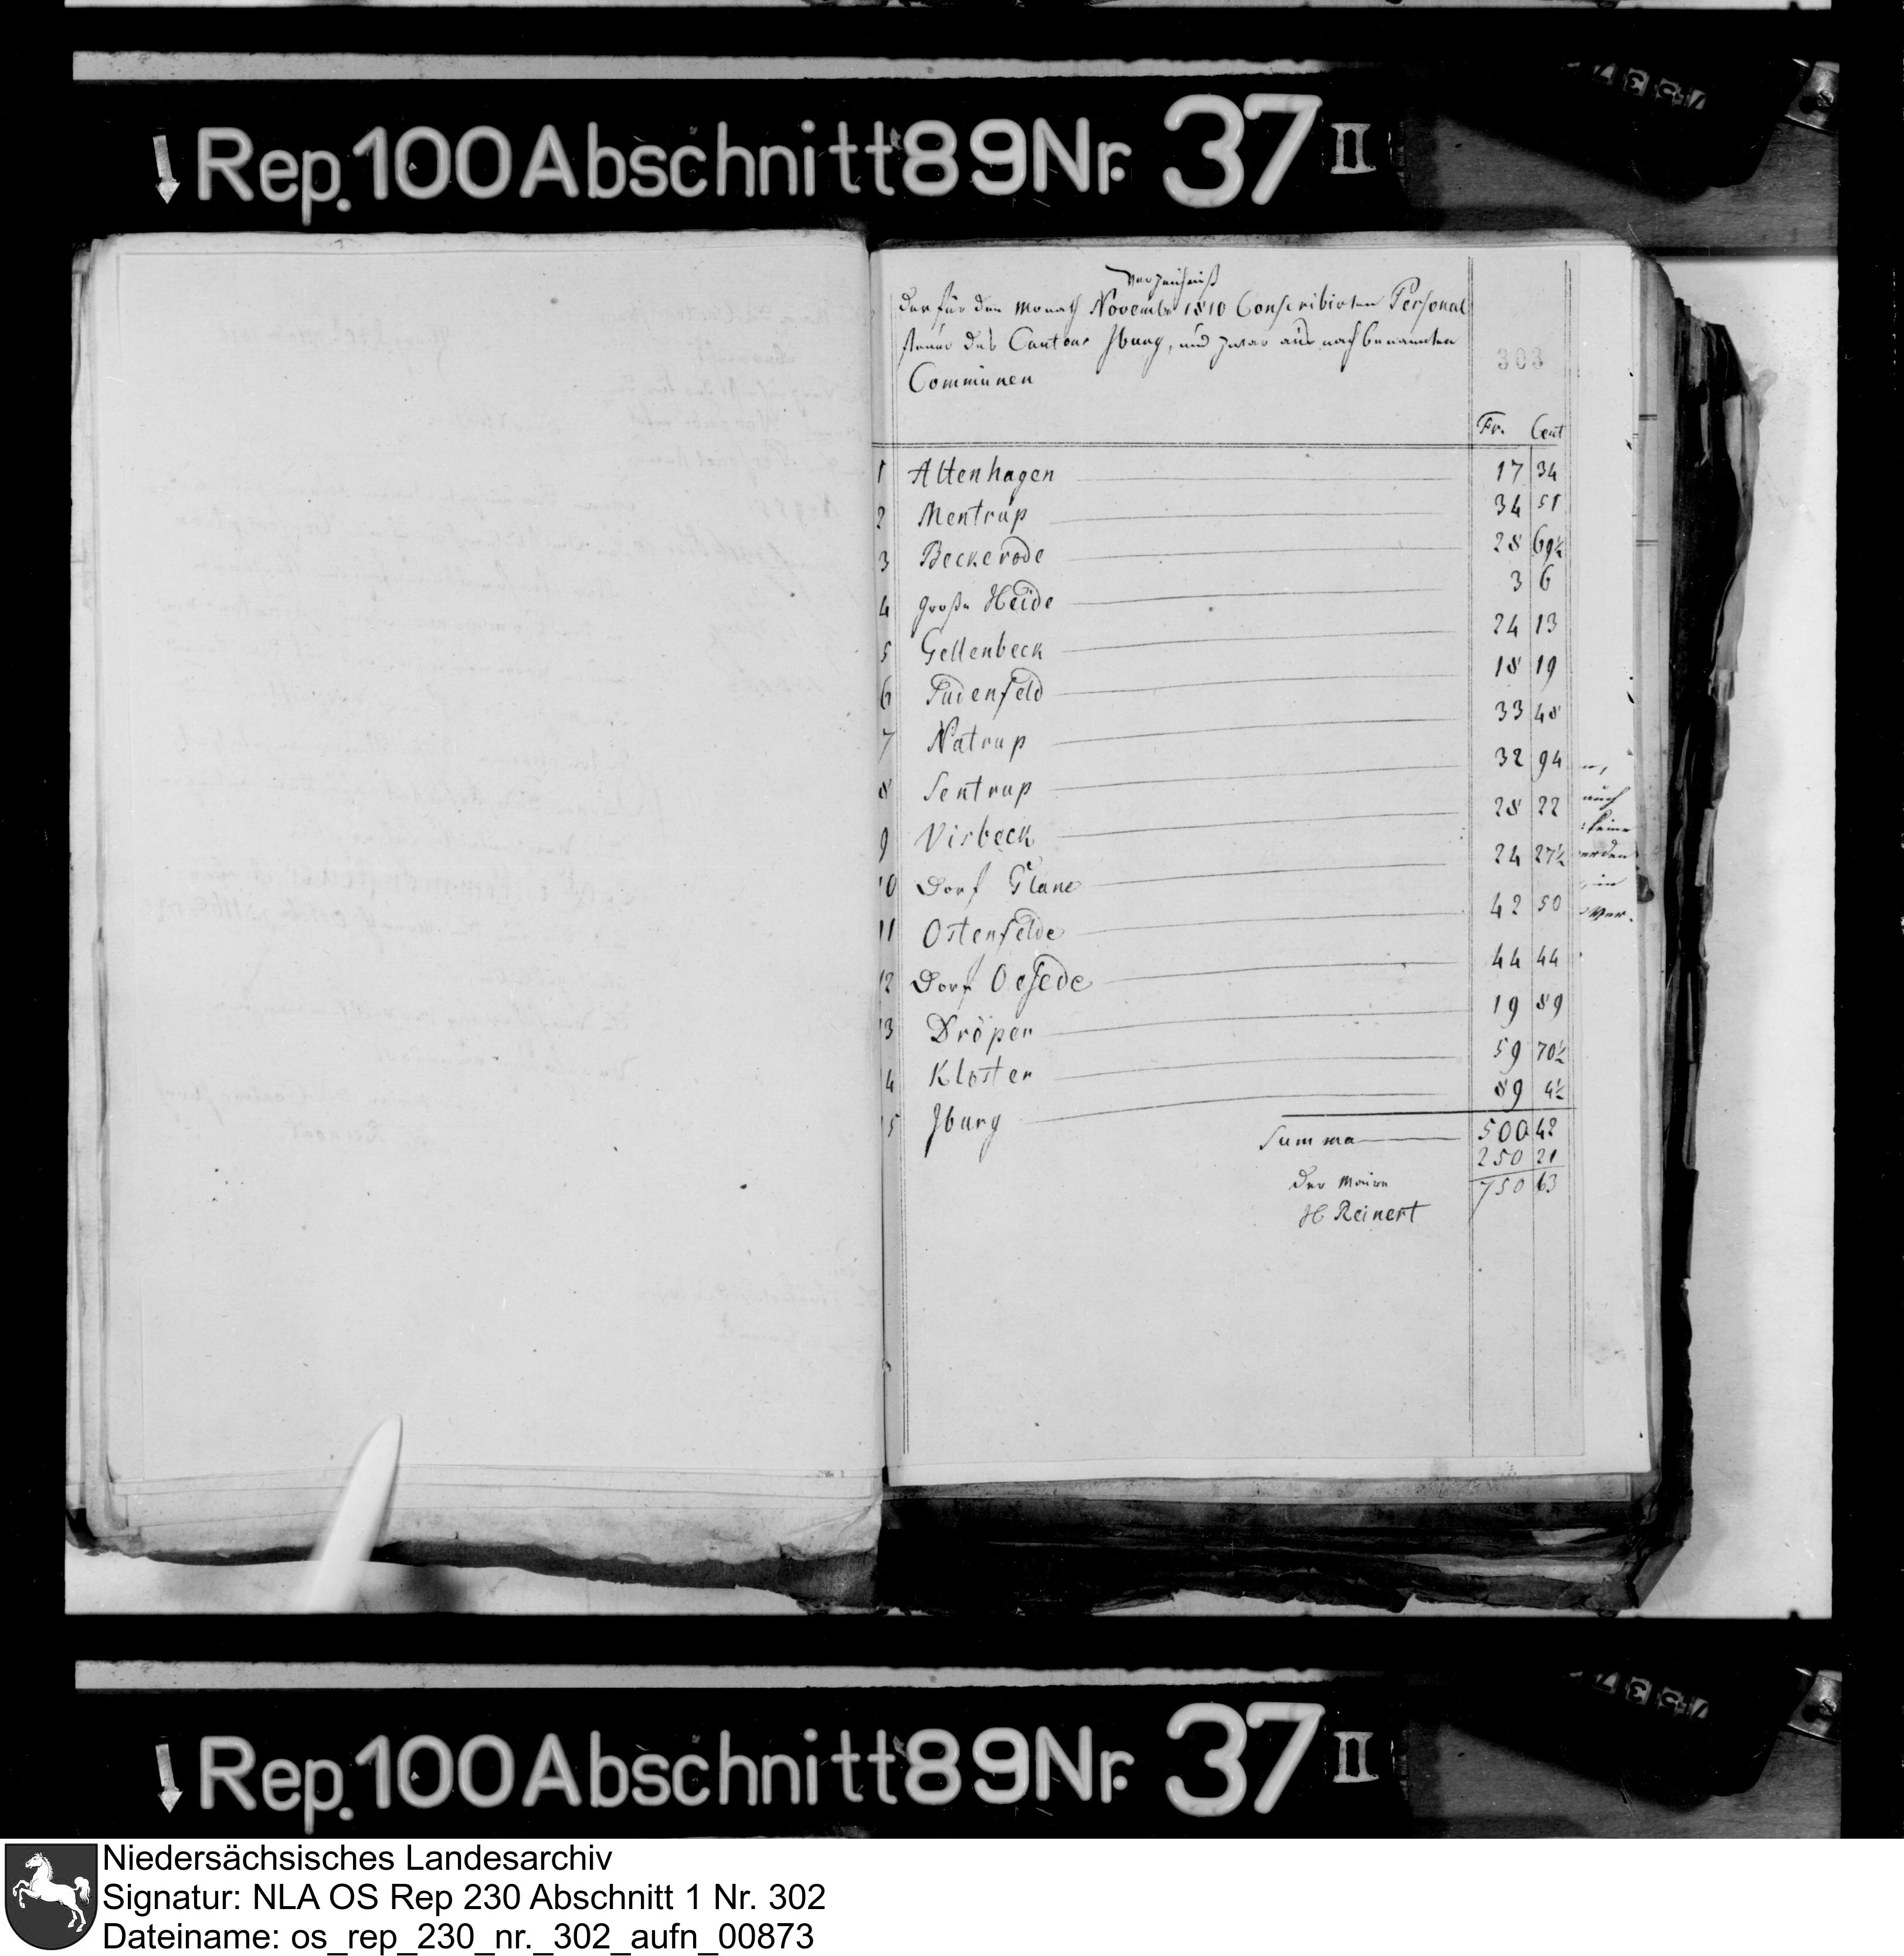 Rep. 100 Abschnitt 89 Nr. 37 II
Verzeichniß
der für den Monath November 1810 Conscribirten Personal
steuer des Cantons Iburg, und zwar aus nachbenannten
Communen
303
Fr. Cent
1 Altenhagen 17 34
2 Mentrup 34 51
3 Beckerode 28 69½
4 große Heide 3 6
5 Gellenbeck 24 13
6 Sudenfeld 18 19
7 Natrup 33 48
8 Sentrup 32 94
9 Visbeck 28 22
10 Dorf Glane 24 27½
11 Ostenfelde 42 50
12 Dorf Oesede 44 44
13 Dröper 19 89
14 Kloster 59 70½
15 Iburg 89 4½
Summa 500 42
250 21
750 63
Der Maire
H Reinert
auch
keine
erden
in
Ver-
Rep. 100 Abschnitt 89 Nr. 37 II
Niedersächsisches Landesarchiv
Signatur: NLA OS Rep 230 Abschnitt 1 Nr. 302
Dateiname: os_rep_230_nr._302_aufn_00873